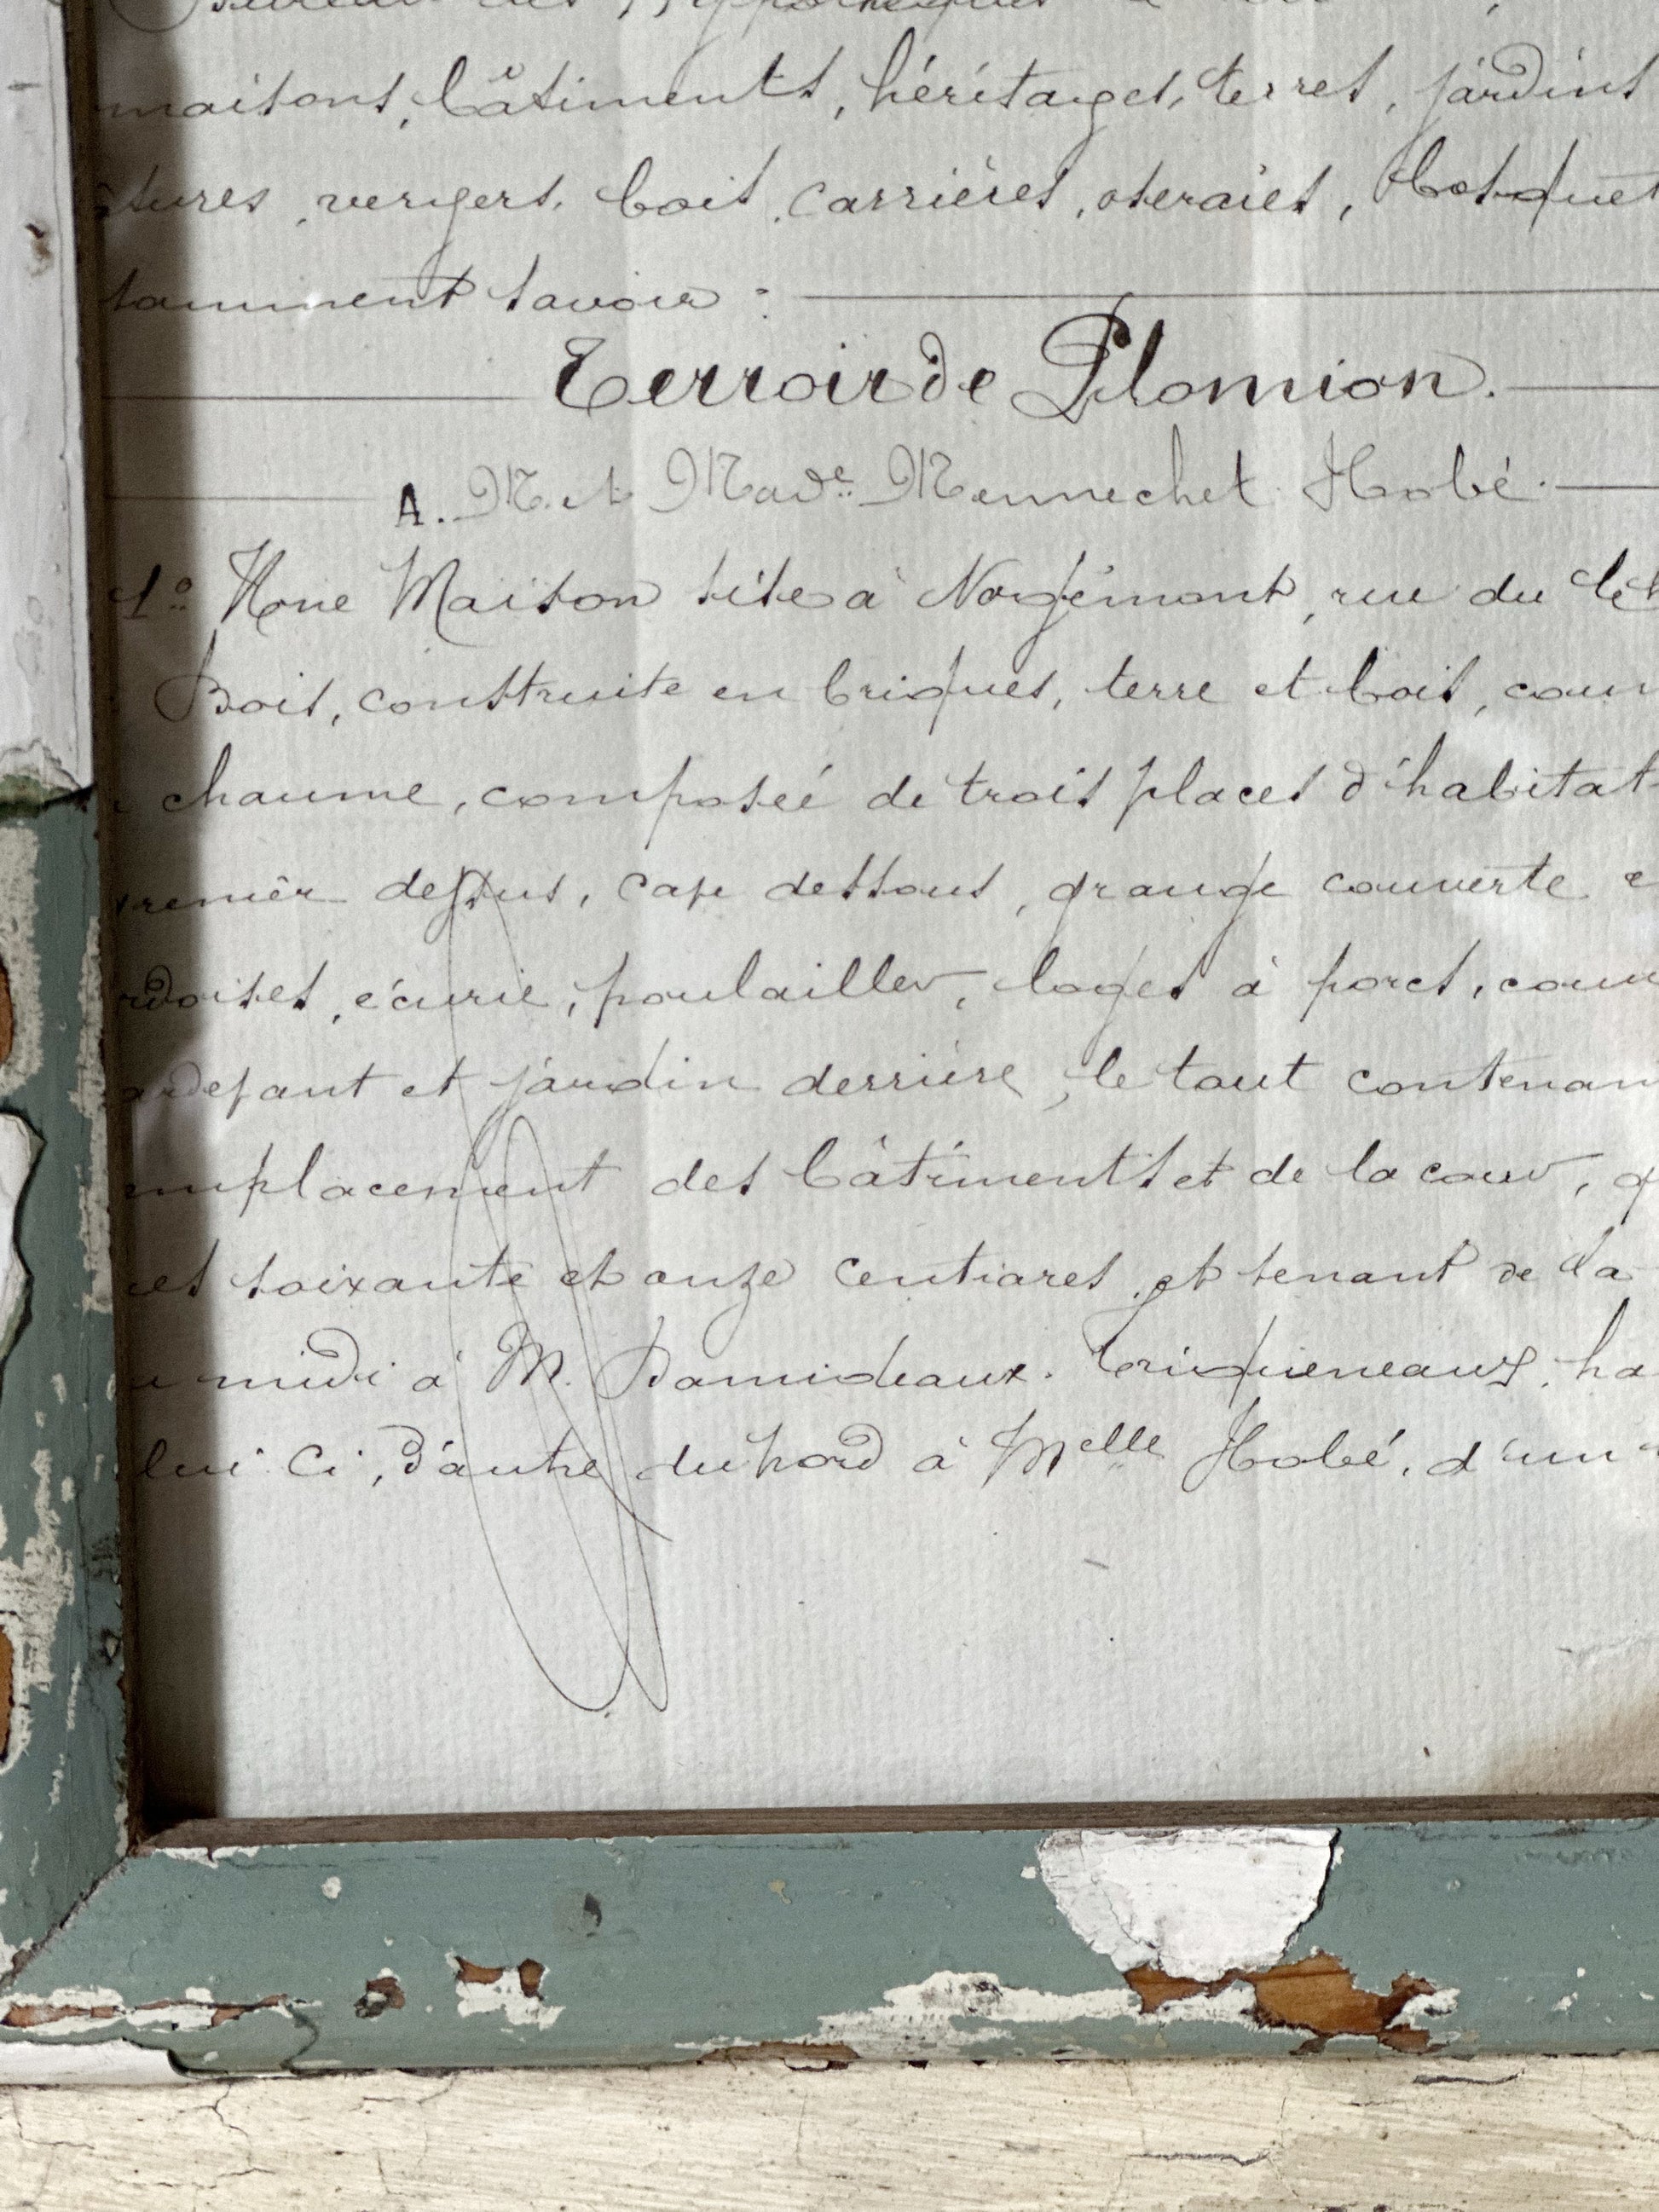 Bureau des Hypothèques
maisons, bâtiments, héritages, terres, jardins
tures, vergers, bois, carrières, oseraies, bosquets
tamment savoir :
Terroir de Plomion.
A. M. et Made. Mennechet Hobé.
1o. Une Maison sise à Norgémont, rue du
Bois, construite en briques, terre et bois, couv
chaume, composée de trois places d'habitat
remier dessus, cave dessous, grange couverte e
rdoises, écurie, poulailler, loges à porcs, cour
ardevant et jardin derrière, le tout contenan
emplacement des bâtiments et de la cour,
res soixante et onze centiares et tenant de la
u midi à M. Damideaux. Triqueneaux, ha
lui ci, d'autre du nord à Melle Hobé, d'un